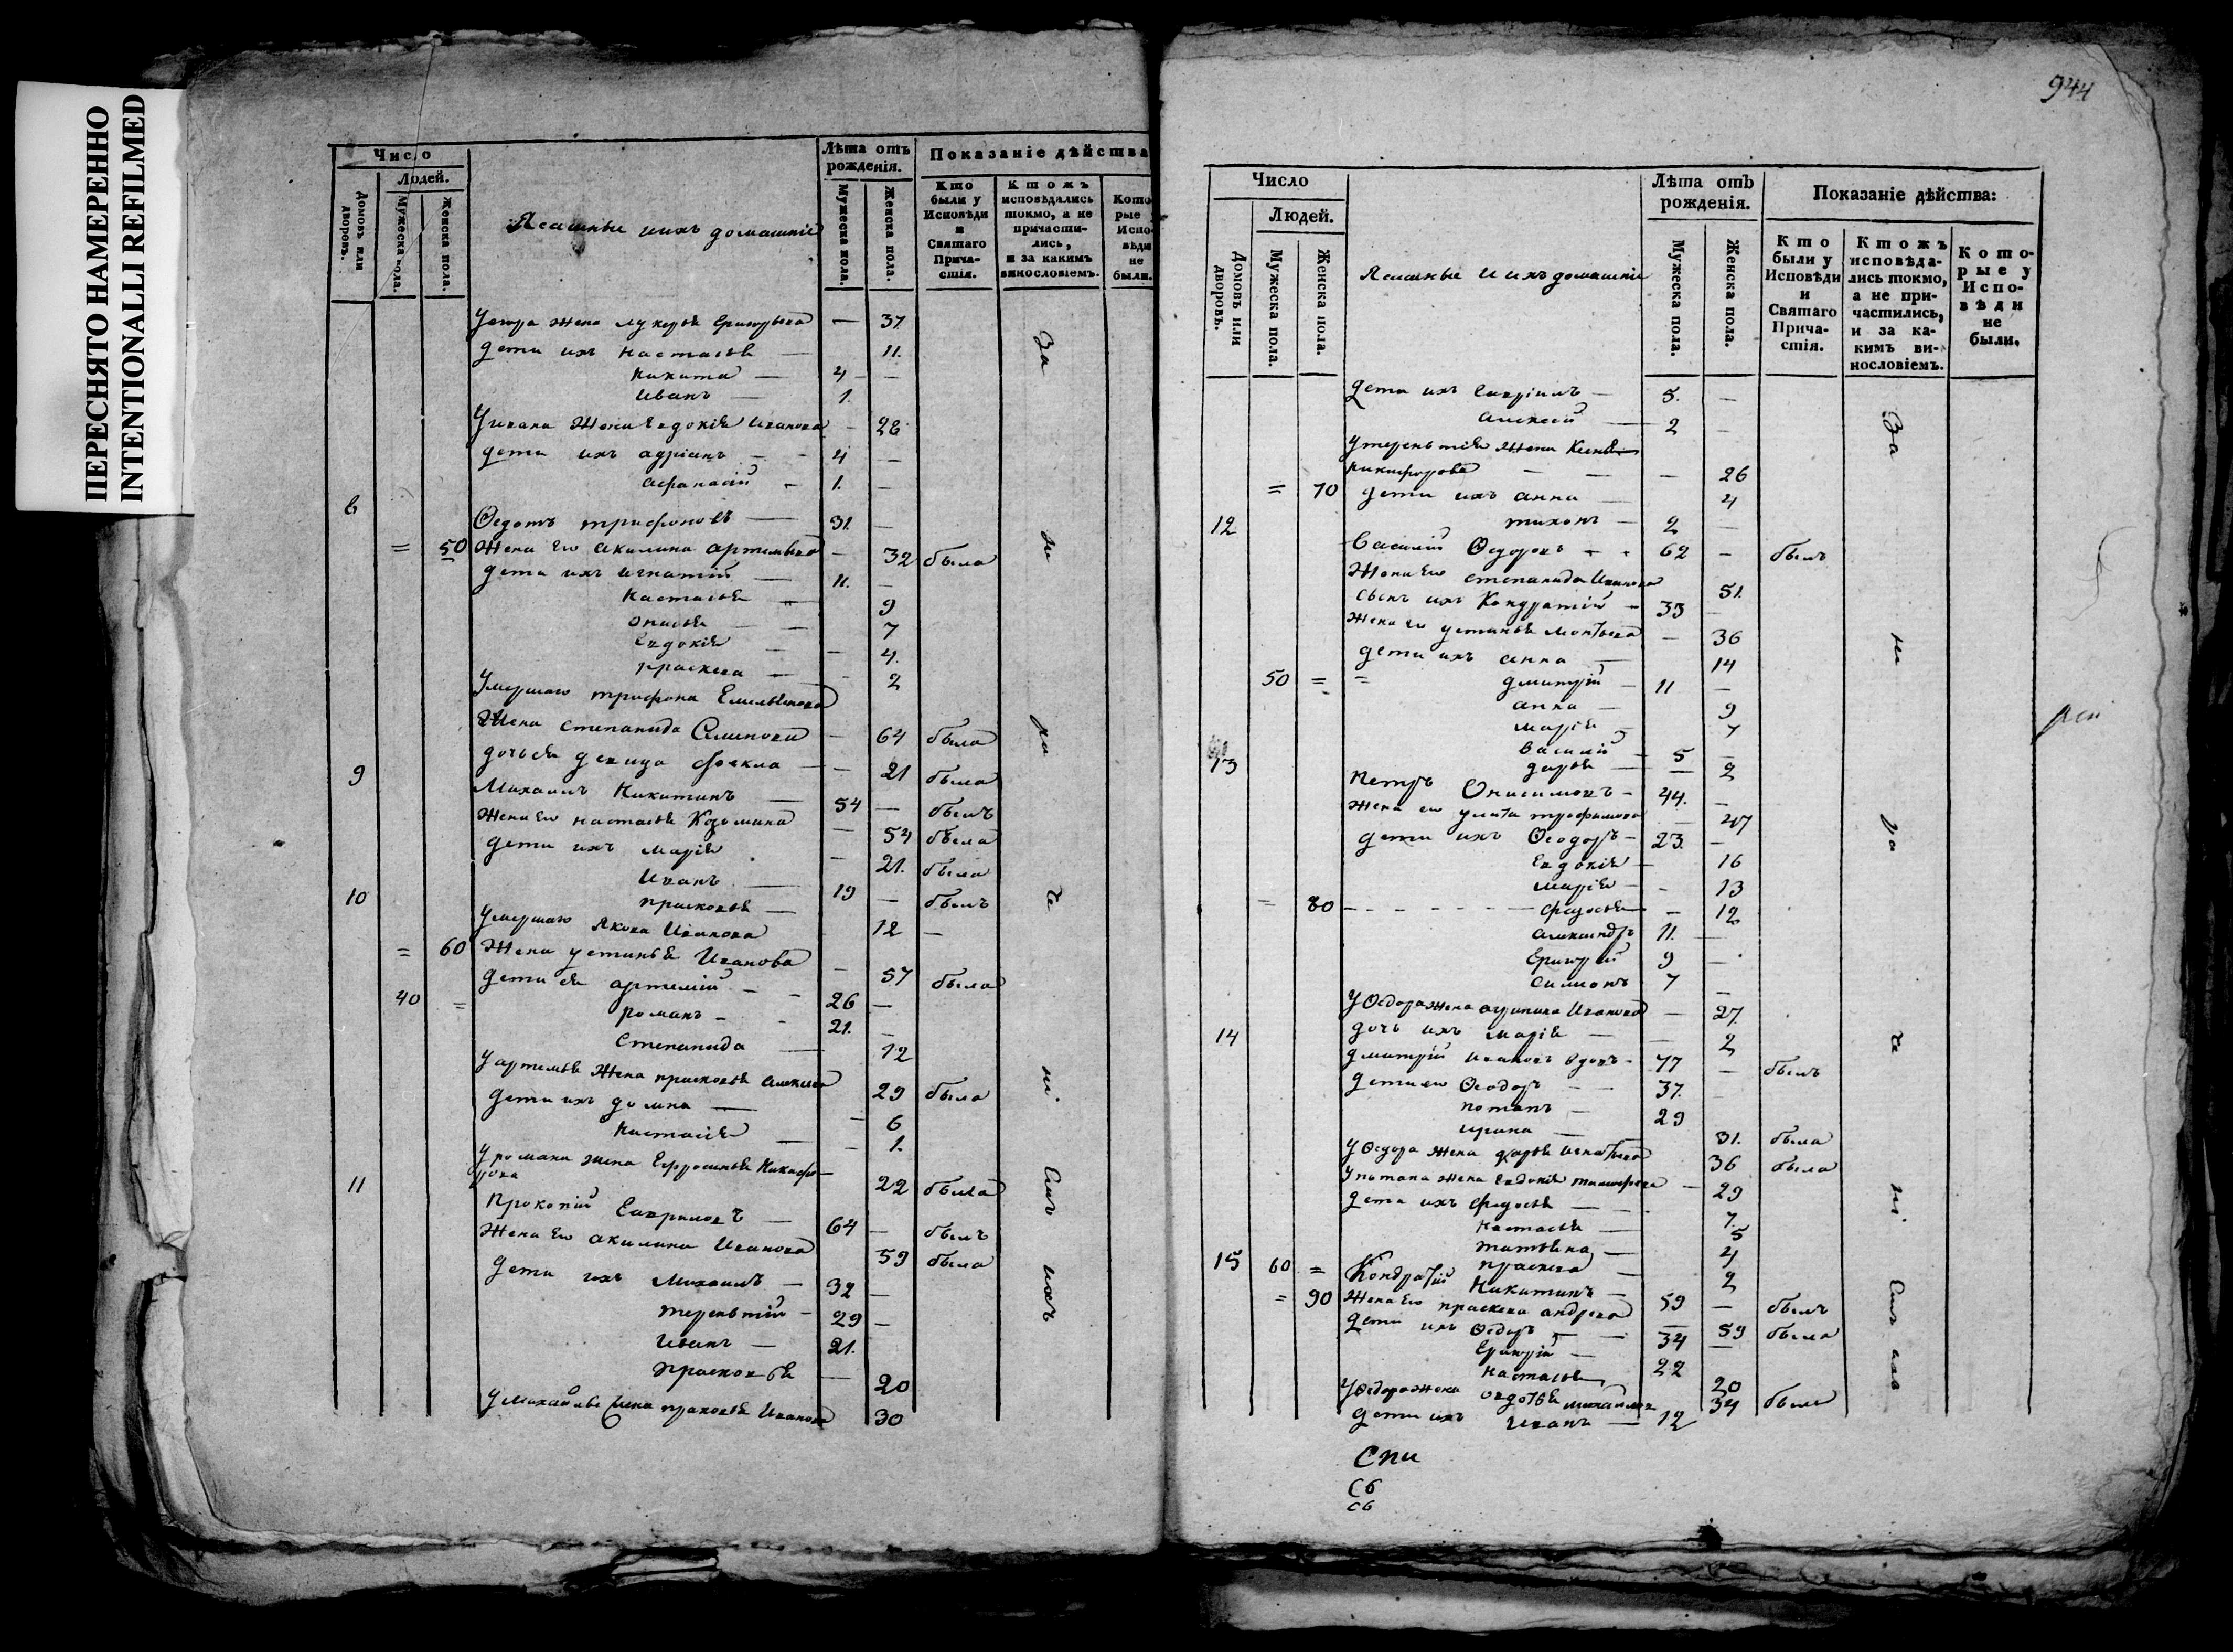 ПЕРЕСНЯТО НАМЕРЕННО
INTENTIONALLI REFILMED
Число
Людей.
Домовъ или дворовъ.
Мужеска пола.
Женска пола.
Ясашные и ихъ домашніе
Лѣта отъ рожденія.
Мужеска пола.
Женска пола.
Показаніе дѣйства
Кто были у Исповѣди и Святаго Прича-стія.
Ктожъ исповѣдались токмо, а не причасти-лись, и за какимъ винословіемъ.
Кото рые у Испо-вѣди не были.
жена лукерья Григорьева — 37.
дети ихъ настасья — 11.
никита — 4 —
иванъ — 1.
Уивана жена Евдокія Иванова — 28
дети ихъ адріанъ — 4 —
афанасій — 1. —
8 Ѳедотъ трифоновъ — 31. —
= 50 Жена Его акилина артемьева — 32 была
дети ихъ игнатій — 11. —
настасья — 9
7
Евдокія — 4.
праскева — 2
Умершаго трифона Емельянова
Жена степанида Семенова — 64 была
дочь ея девица фекла — 21 была
9 Михаилъ Никитинъ — 54 — былъ
Жена Его настасья Козьмина — 54 была
дети ихъ марія — 21. была
Иванъ — 19 — былъ
10 прасковья — 12 —
Умершаго Якова Иванова
= 60 Жена устинья Иванова — 57 была
дети ея артемій — 26 —
40 = романъ — 21. —
Степанида — 12
Уартемья Жена прасковья алексеева 29 была
дети ихъ домна — 6
настасія — 1.
Уромана жена Ефросинья Никифо-
рова 22 была
11 Прокопій Гавриловъ — 64 — былъ
Жена Его акилина Иванова 59 была
дети ихъ Михаилъ — 32 —
терентій — 29 —
иванъ — 21.
прасковья — 20
Умихаила жена прасковья Иванова 30
За не ра че ні емъ ихъ
944
Число
Людей.
Домовъ или дворовъ.
Мужеска пола.
Женска пола.
Ясашные и ихъ домашніе
Лѣта отъ рожденія.
Мужеска пола.
Женска пола.
Показаніе дѣйства:
Кто были у Исповѣди и Святаго Прича-стія.
Ктожъ исповѣда-лись токмо, а не при-частились, и за ка-кимъ ви-нословіемъ.
Кото-рые у Испо-вѣди не были.
Дети ихъ гавріилъ — 5. —
алексей — 2 —
Утерентія жена
никифорова — — 26
= 70 дети ихъ анна — 4
тихонъ — 2 —
12 Василій Ѳедоровъ — 62 — былъ
Жена Его степанида Иванова 51.
сынъ ихъ Кондратій — 33 —
жена его устинья — 36
дети ихъ анна — 14
50 = = дмитрій — 11 —
анна — 9
марія — 7
василій — 5 —
дарья — 2
13 Петръ Онисимовъ — 44. —
жена его улита трофимова — 47
дети ихъ Ѳеодоръ — 23. —
Евдокія — 16
марія — 13
= 80 федосья — 12
александръ 11. —
Григорій 9 —
симионъ 7 —
УѲедора жена агрипина Иванова — 27.
дочь ихъ марія — 2
14 дмитрій ивановъ вдовъ — 77 — былъ
дети его Ѳеодоръ — 37. —
потапъ — 29
ирина — 31. была
УѲедора жена дарья игнатьева 36 была
Употапа жена Евдокія тимофеева — 29
дети ихъ федосья — 7.
настасья — 5
татьяна — 4
праскева — 2
15 60 = Кондратій Никитинъ — 59 — былъ
= 90 жена Его праскева андреева — 59 была
дети ихъ Ѳедоръ — 34 —
Григорій — 22
настасья 20
УѲедора жена авдотья михайлова 34 была
дети ихъ Иванъ — 12
За не ра че ні емъ ихъ
Спи
Сб
Сб